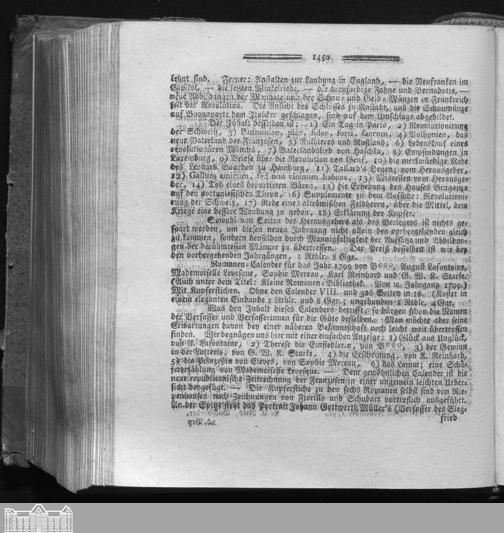 1450
lehnt sind. Ferner: Anstalten zur Landung in England, — die Neufranken im
Capitol, — die letzten Winkelriede, — die dreyfarbige Fahne und Bernadotte, —
neue Abbildungen der Mandate und der Schau- und Geld-Münzen in Frankreich
seit der Revolution. Die Ansicht des Schlosses zu Rastatt, und die Schaumünze
auf Buonaparte von Italiker geschlagen, sind auf dem Umschlage abgebildet.
Der Inhalt desselben ist: 1) Ein Tag in Paris, 2) Revolutionirung
der Schweiz, 3)
das neue Vaterland der Franzosen, 5) Rulhieres und Rußland, 6) Lebenslauf eines
revolutionären Mönchs, 7) Vaterlandslied von Haschka, 8) Empfindungen in
Luxenburg, 9) Briefe über die Revolution von Genf, 10) die merkwürdige Rede
des Leonard Bourdon zu Hamburg, 11) Tallard's Degen; vom Herausgeber,
12) Gallum amicum, sed non vicinum habeas, 13) Miscellen vom Herausge-
ber, 14) Tod eines deportirten Bären, 15) die Erhebung des Hauses Braganza
auf den portugiesischen Thron, 16) Supplemente zu dem Aufsatze: Revolutioni-
rung der Schweiz, 17) Rede eines altrömischen Feldherrn, über die Mittel, dem
Kriege eine bessere Wendung zu geben, 18) Erklärung der Kupfer.
Sowohl von Seiten des Herausgebers als des Verlegers ist nichts ge-
spart worden, um diesen neuen Jahrgang nicht allein den vorhergehenden gleich
zu kommen, sondern denselben durch Mannigfaltigkeit der Aufsätze und Abbildun-
gen der berühmtesten Männer zu übertreffen. Der Preiß desselben ist wie bey
den vorhergehenden Jahrgängen, 1 Rthlr. 8 Ggr.
Romanen-Calender für das Jahr 1799 von August Lafontaine,
Mademoiselle Levesque, Sophie Mereau, Karl Reinhard und G. W. K. Starke.
(Auch unter dem Titel: Kleine Romanen-Bibliothek. Von 1r Jahrgang 1799.)
Mit Kupferstichen. Ohne den Calender VIII. und 326 Seiten in 16. (Kostet in
einem eleganten Einbande 1 Rthlr. und 8 Ggr.; ungebunden 1 Rthlr. 4 Ggr.
Was den Inhalt dieses Calenders betrifft: so bürgen schon die Namen
der Verfasser und Verfasserinnen für die Güte desselben. Man möchte aber seine
Erwartungen davon bey einer näheren Bekanntschaft noch leicht weit übertroffen
finden. Wir begnügen uns hier mit einer einfachen Anzeige: 1) Glück aus Unglück,
von A. Lafontaine, 2) Therese die Einsiedlerin, von 3) der Gewinn
in der Lotterie, von G. W. K. Starke, 4) die Erscheinung, von K. Reinhard,
5) die Prinzessin von Cleves, von Sophie Mereau, 6) das Lamm; eine Schä-
fererzählung von Mademoiselle Levesque. — Dem gewöhnlichen Calender ist die
neue republikanische Zeitrechnung der Franzosen in einer ungemein leichten Ueber-
sicht beygefügt. — Die Kupferstiche zu den sechs Romanen selbst sind von Rie-
penhausen nach Zeichnungen von Fiorillo und Schubart vortreflich ausgeführt.
An der Spitze steht das Portrait Johann Gottwerth Müller's (Verfasser des Sieg-
fried